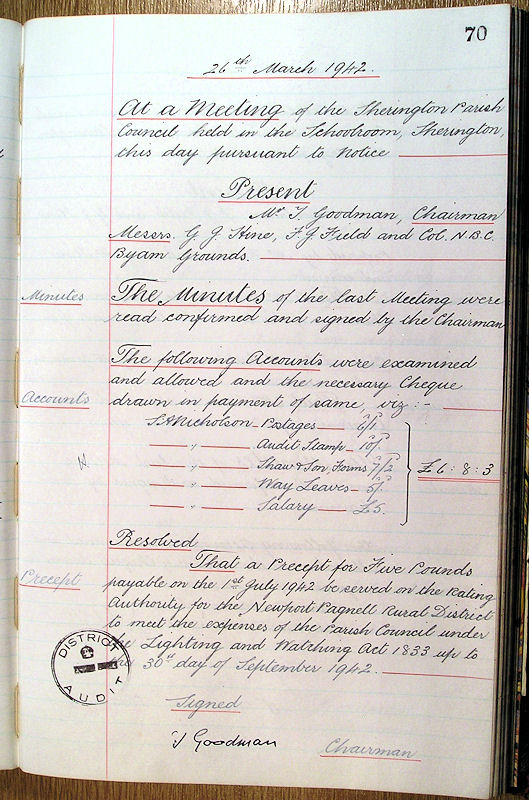 70
26th March 1942.
At a Meeting of the Sherington Parish
Council held in the Schoolroom, Sherington,
this day pursuant to Notice
Present
Mr T. Goodman, Chairman
Messrs. G. J. Hine, F. J. Field and Col. N.B.C.
Byam Grounds.
Minutes
The Minutes of the last Meeting were
read confirmed and signed by the Chairman
The following Accounts were examined
and allowed and the necessary Cheque
Accounts
drawn in payment of same, viz :-
S.A Nicholson - Postages 6/1
" Audit Stamp 10/-
" Shaw & Son, Forms 7/2
£6 : 8 : 3
" Way Leaves 5/-
" Salary £5.
Resolved
That a Precept for Five Pounds
Precept
payable on the 1st July 1942 be served on the Rating
Authority for the Newport Pagnell Rural District
to meet the expenses of the Parish Council under
the Lighting and Watching Act 1833 up to
the 30th day of September 1942.
DISTRICT
AUDIT
Signed
T Goodman
Chairman